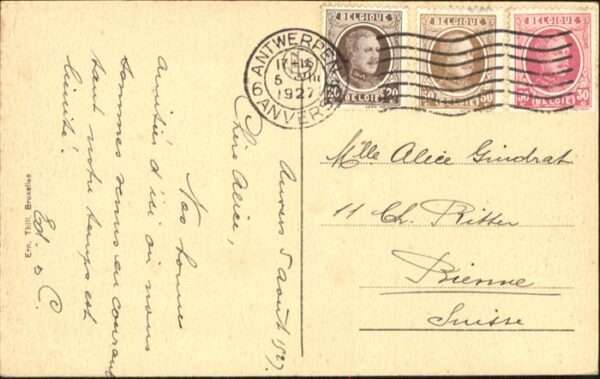 BELGIQUE
20 BELGIË 20
BELGIQUE
BELGIQUE
BELGIË 30
ANTWERPEN
5 VIII
1927
6 ANVERS
Anvers 5 août 1927.
Chère Alice,
Nos bonnes
amitiés d'ici où nous
sommes venus en courant
tant notre temps est
limité!
Ed. & C.
Ern. Thill, Bruxelles
Mlle Alice Gindrat
11 Ch. Ritter
Bienne
Suisse